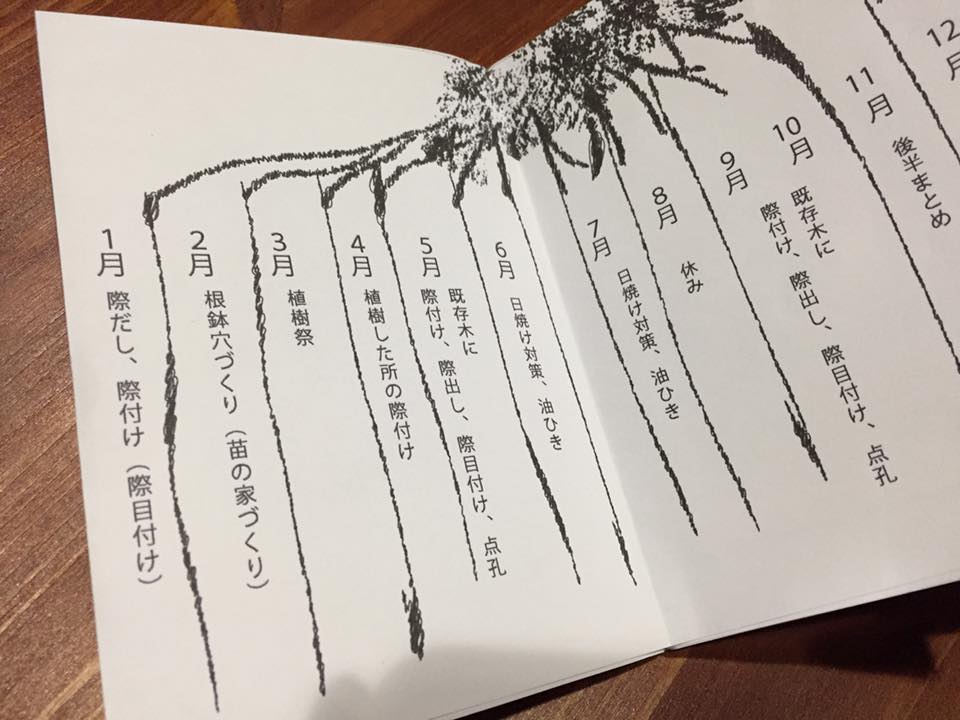 1月 際だし、際付け（際目付け）
2月 根鉢穴づくり（苗の家づくり）
3月 植樹祭
4月 植樹した所の際付け
5月 既存木に
際付け、際出し、際目付け、点孔
6月 日焼け対策、油ひき
7月 日焼け対策、油ひき
8月 休み
9月
10月 既存木に
際付け、際出し、際目付け、点孔
11月 後半まとめ
12月